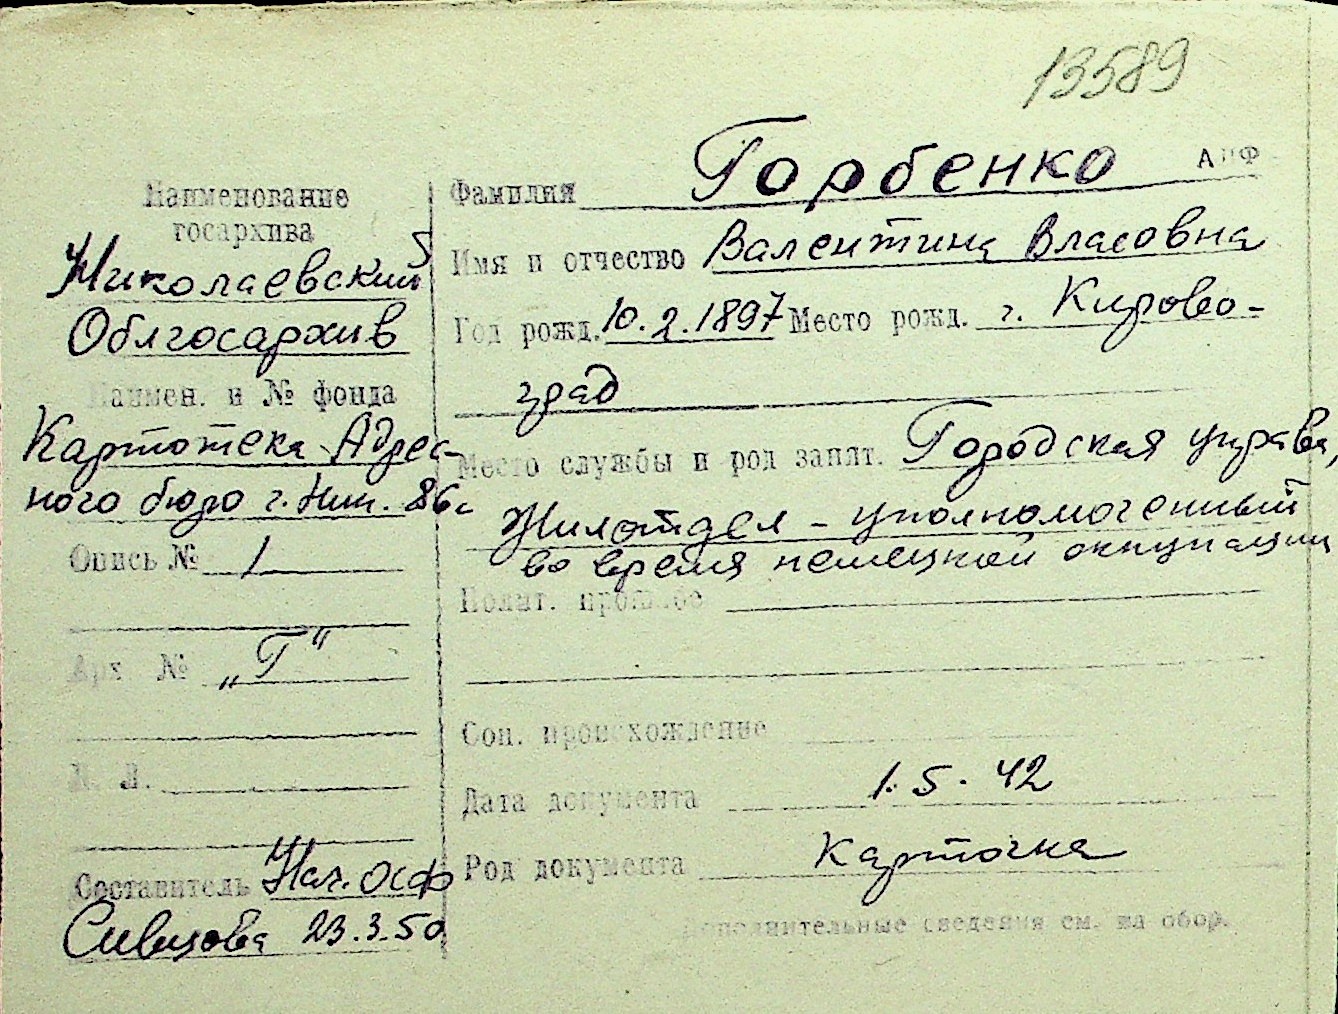 13589
АПФ
Наименование
госархива
Николаевский
Облгосархив
Наимен. и № фонда
Картотека Адрес-
ного бюро г. Ник.
Опись № 1
Арх № „Г"
Л. Л.
Составитель Нач. ОСФ
Сивцова 23.3.50
Фамилия Горбенко
Имя и отчество Валентина Власовна
Год рожд. 10.2.1897 Место рожд. г. Кирово-
град
Место службы и род занят. Городская управа,
Жилотдел - уполномоченный
во время немецкой оккупации
Полит. прошлое
Соц. происхождение
Дата документа 1.5.42
Род документа карточка
Дополнительные сведения см. на обор.